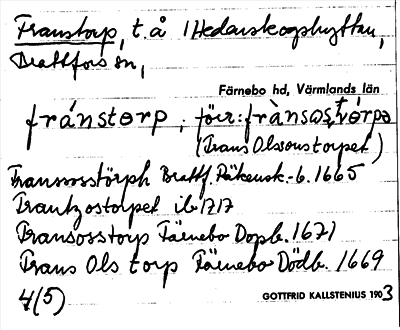 Franstorp, t. å Hedenskogshyttan,
Brattfors sn,
Färnebo hd, Värmlands län
fránstɵrp ; förr: frànsɷstɵ́rpə
(Frans Olssonstorpet)
Fransosstörph Brattf. Räkensk.-b. 1665
Frantzostorpet ib 1717
Fransosstorp Färnebo Dopb. 1671
Frans Ols torp Färnebo Dödb. 1669
4(5)
GOTTFRID KALLSTENIUS 1903